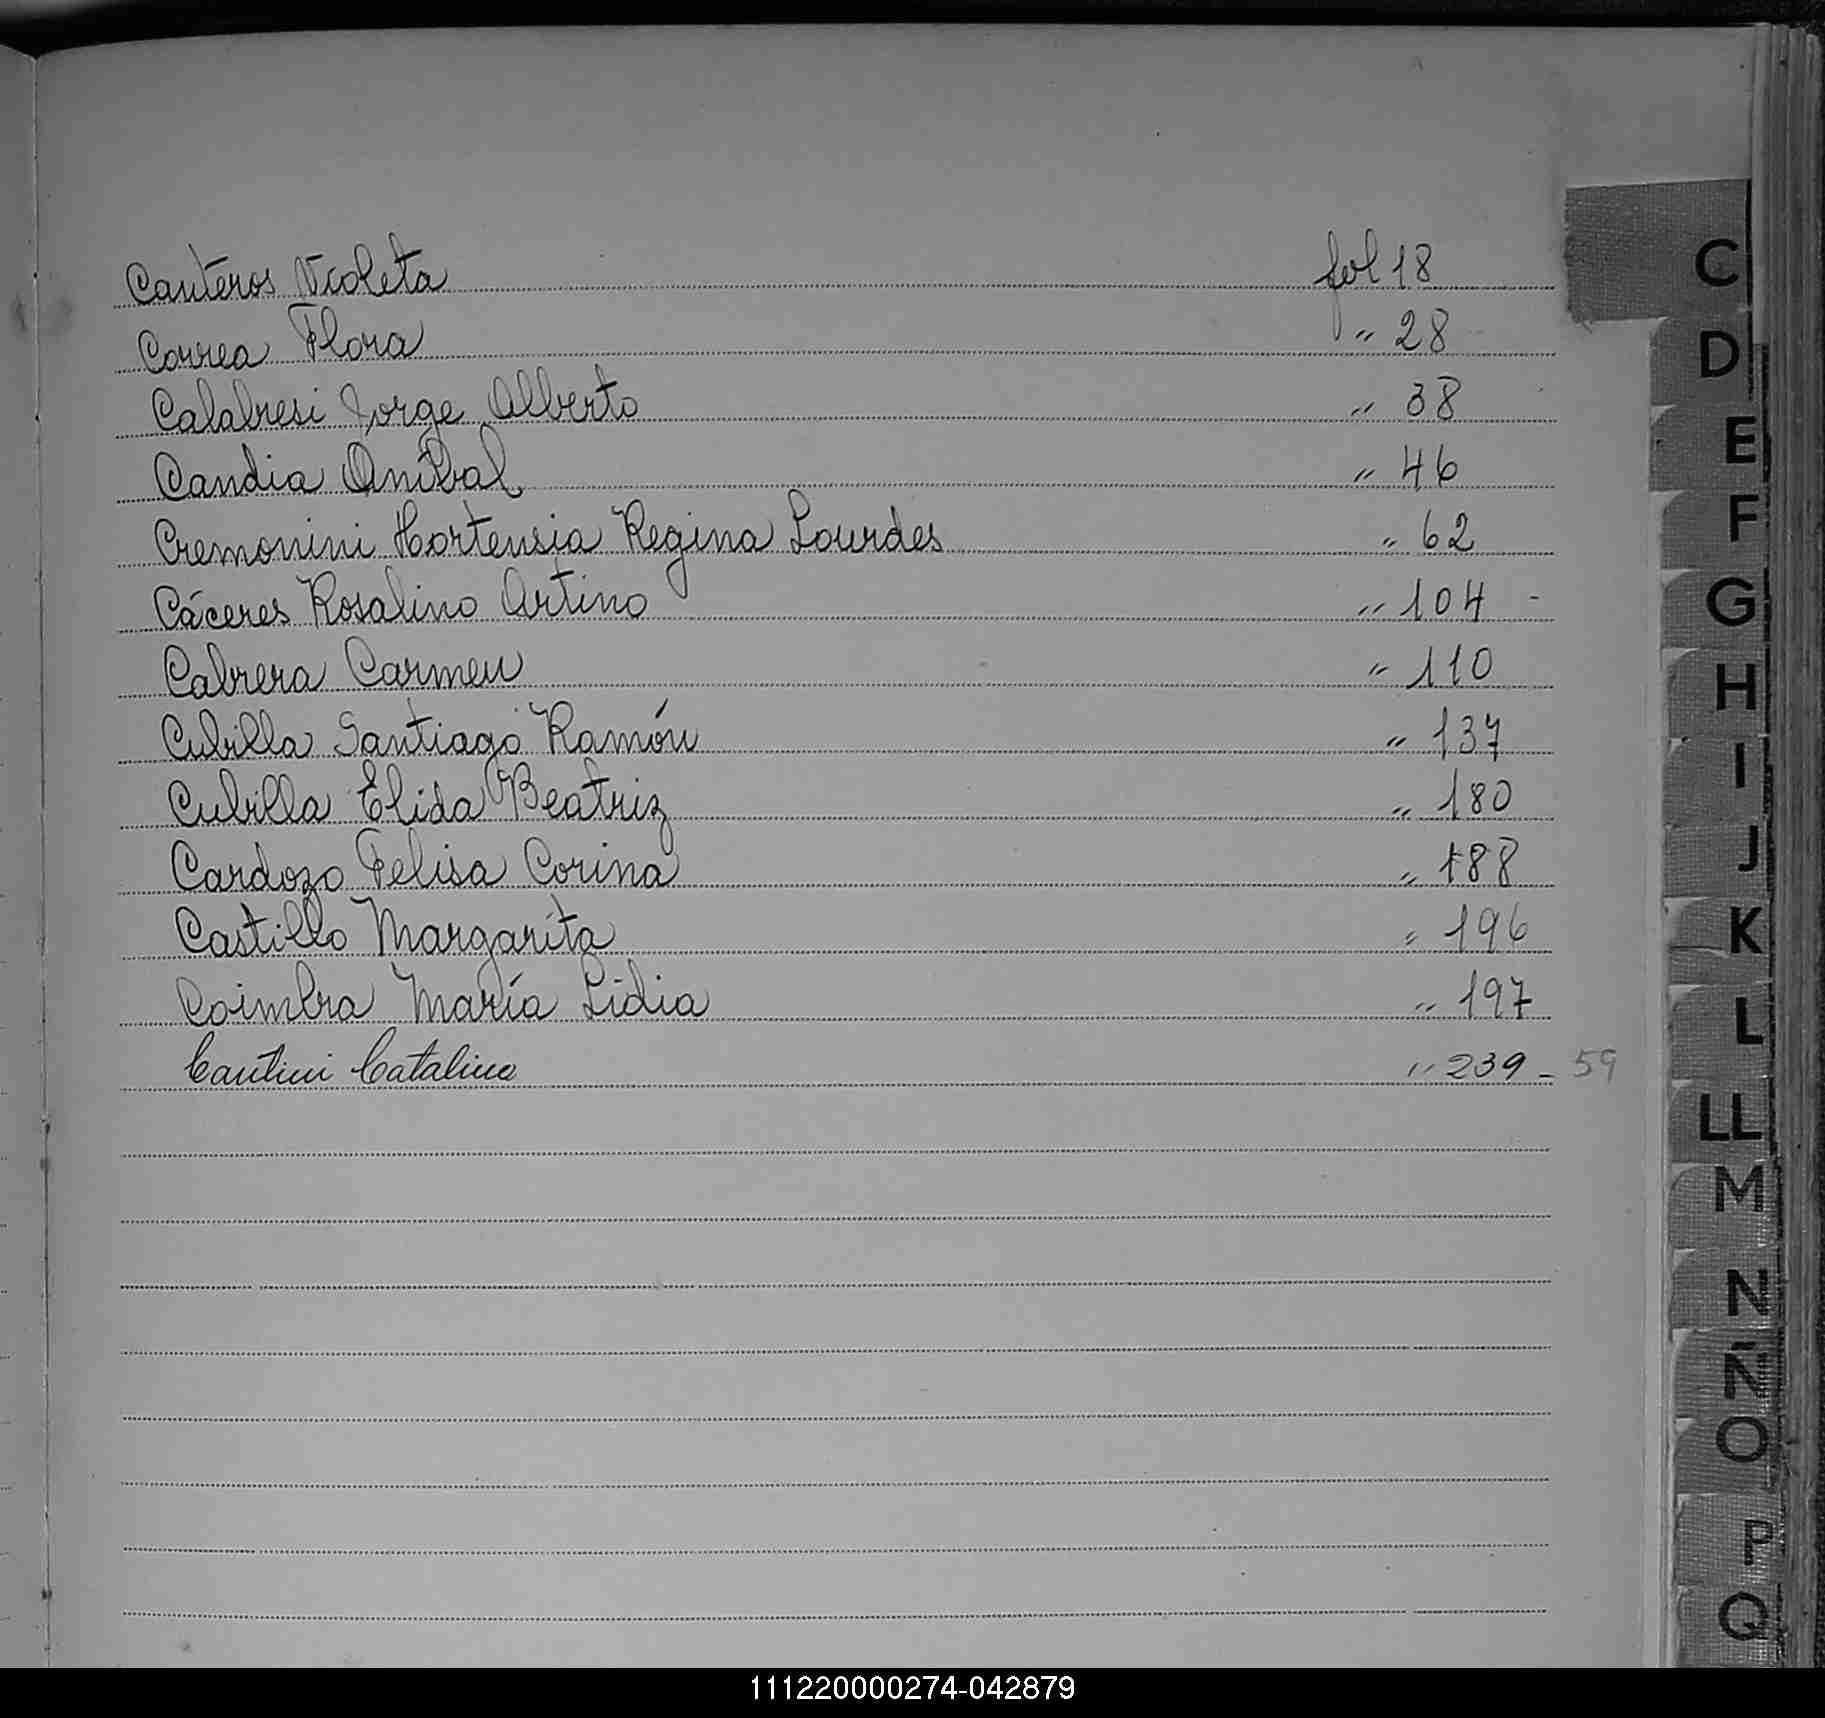 Canteros Violeta fol 18
Correa Flora " 28
Calabresi Jorge Alberto " 38
Candia Anibal " 46
Cremonini Hortensia Regina Lourdes " 62
Cáceres Rosalino Artino " 104 -
Cabrera Carmen " 110
Cubilla Santiago Ramón " 137
Cubilla Elida Beatriz " 180
Cardozo Felisa Corina " 188
Castillo Margarita " 196
Coimbra María Lidia " 197
Cantini Catalina " 239 - 59
C
D
E
F
G
H
I
J
K
L
LL
M
N
Ñ
O
P
Q
111220000274-042879